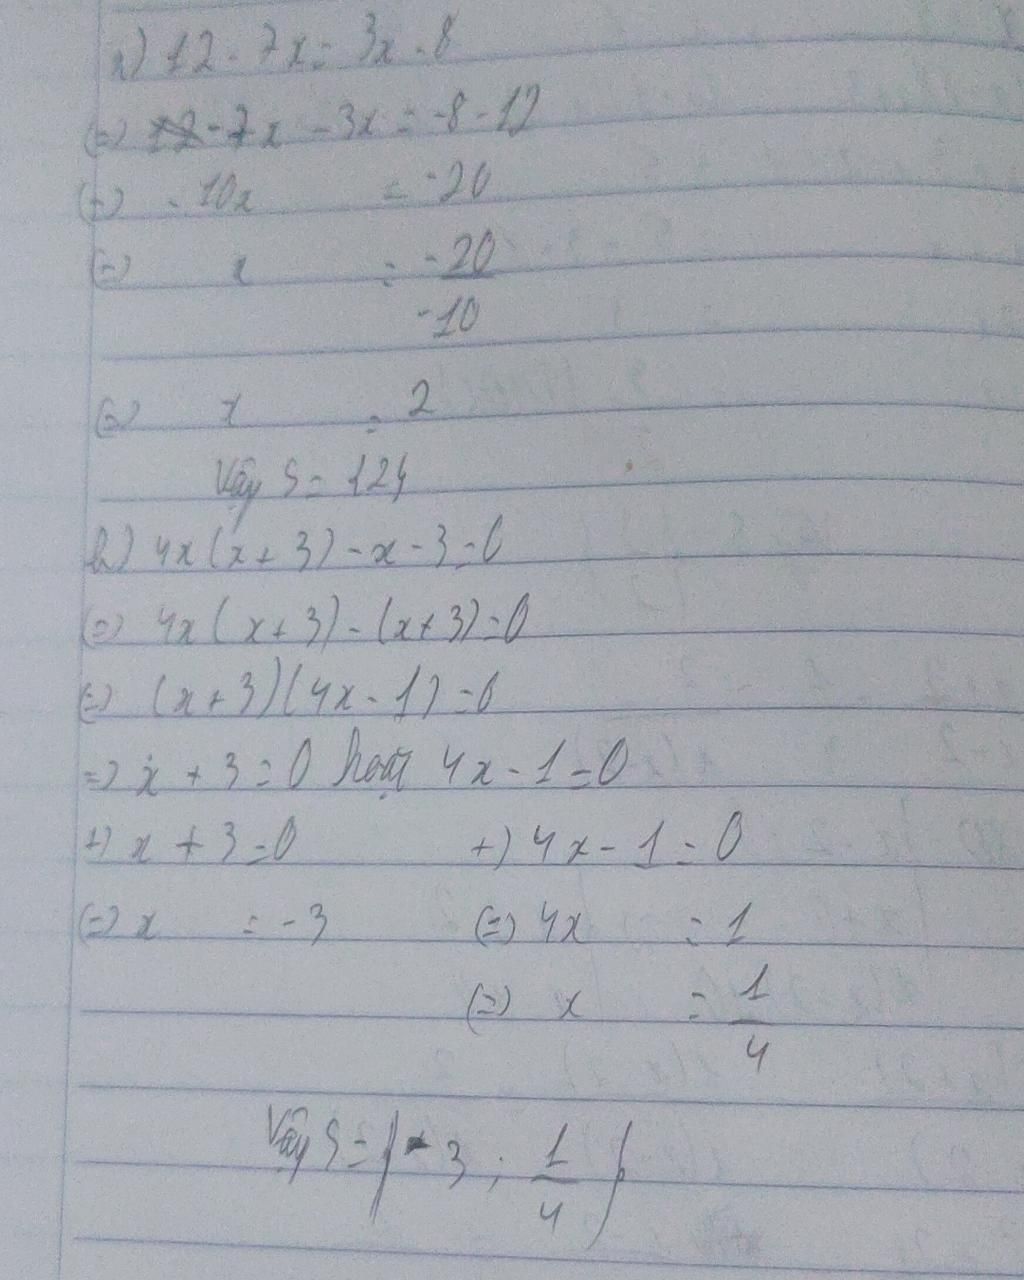 a) 12 - 7x = 3x - 8
(=) -7x - 3x = -8 - 12
(=) -10x = -20
(=) x = -20/-10
(=) x = 2
Vậy S = {2}
b) 4x(x + 3) - x - 3 = 0
(=) 4x(x + 3) - (x + 3) = 0
(=) (x + 3)(4x - 1) = 0
=) x + 3 = 0 hoặc 4x - 1 = 0
+) x + 3 = 0 +) 4x - 1 = 0
(=) x = -3 (=) 4x = 1
(=) x = 1/4
Vậy S = {-3 ; 1/4}